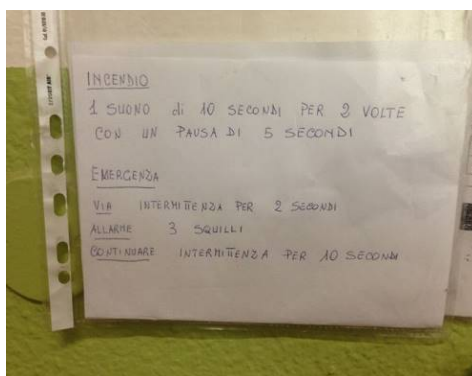 INCENDIO
1 SUONO di 10 SECONDI PER 2 VOLTE
CON UN PAUSA DI 5 SECONDI
EMERGENZA
VIA INTERMITTENZA PER 2 SECONDI
ALLARME 3 SQUILLI
CONTINUARE INTERMITTENZA PER 10 SECONDI